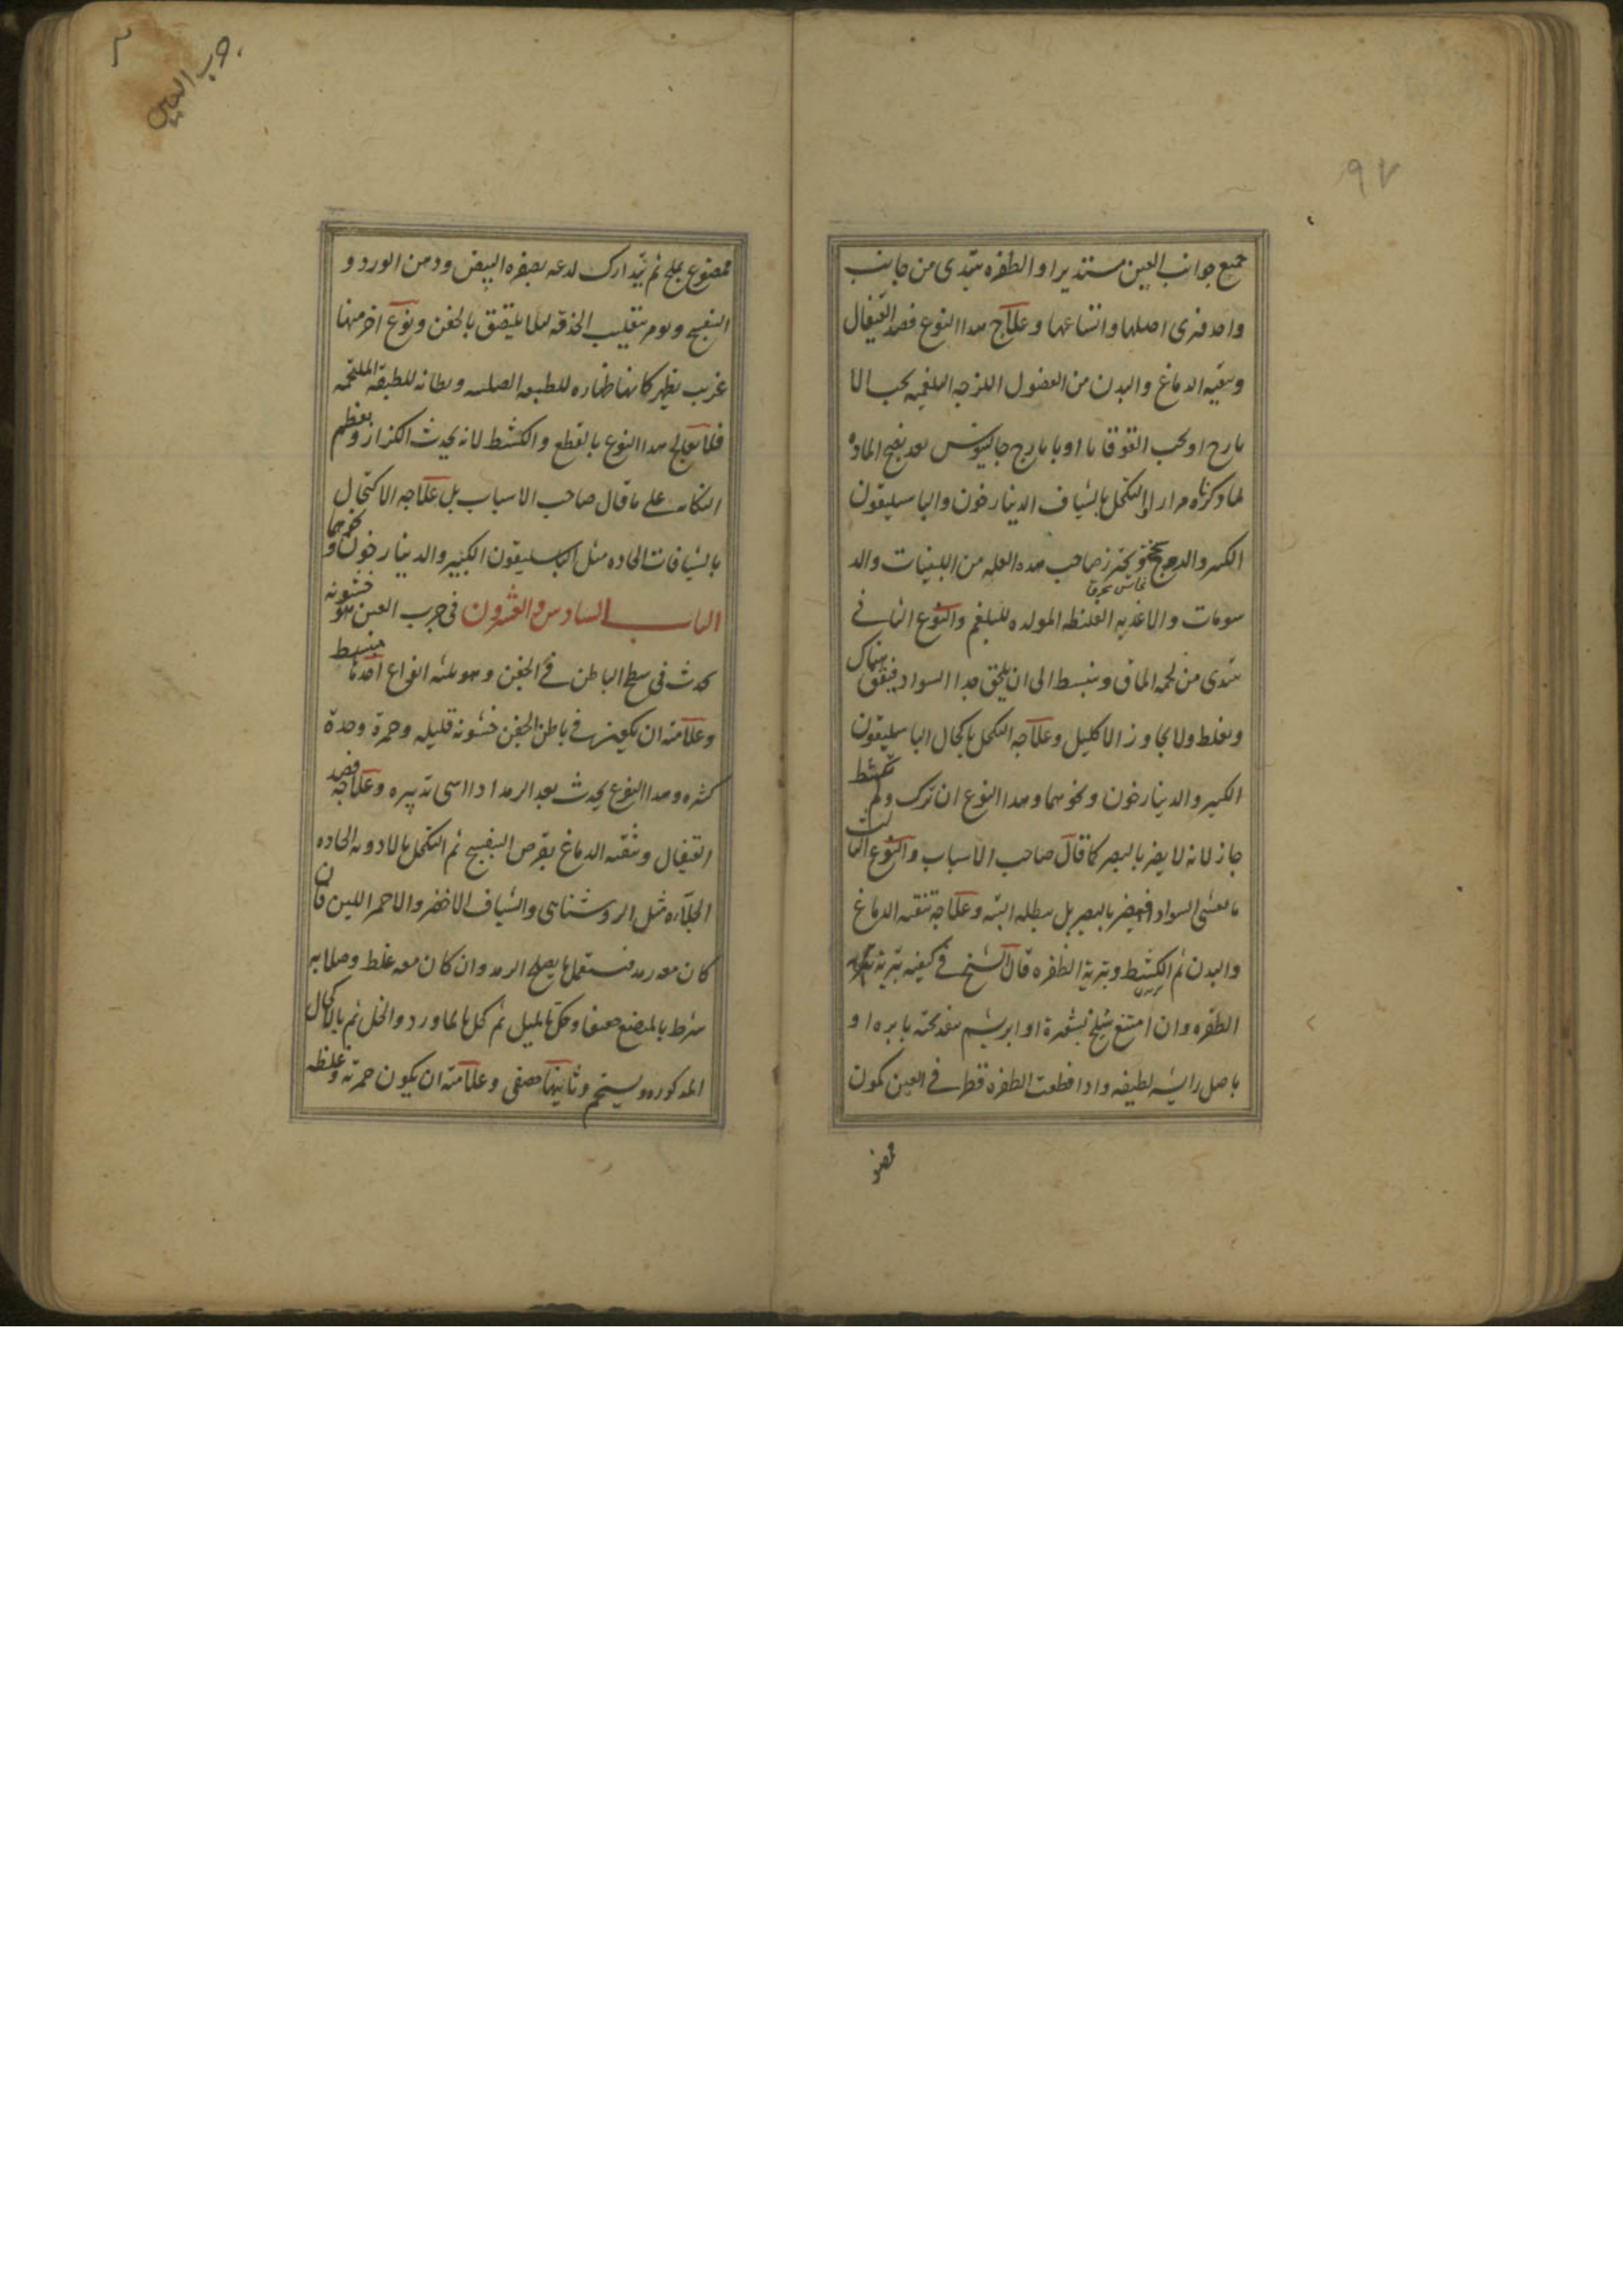 ٩٧
جميع جوانب العين مستديرا والظفره تبتدى من جانب
واحد فترى اصلها واتساعها وعلاج هذا النوع فصد القيفال
وتنقيه الدماغ والبدن من الفضول اللزجه البلغميه بحب الا
يارج او بحب القوقايا او بايارج جالينوس بعد نضج الماده
لما ذكرناه مرارا والتكحل بالشياف الدينارخون والباسليقون
الكبير والروسختج ويحترز صاحب هذه العله من اللبنيات والد
نحاس محرق
سومات والاغذيه الغليظه المولده للبلغم والنوع الثانى
يبتدى من لحمه الماق وينبسط الى ان يلحق بهذا السواد فيقف هناك
ويغلظ ولا يجاوز الاكليل وعلاجه التكحل باكحال الباسليقون
الكبير والدينارخون ونحوهما وهذا النوع ان ترك ولم يكشط
جاز لانه لا يضر بالبصر كما قال صاحب الاسباب والنوع الثالث
ما يغشى السواد فيضر بالبصر بل يبطله البته وعلاجه تنقيه الدماغ
والبدن ثم الكشط وتبرية الظفره قال الشيخ فى كيفيه تبرية
الظفره وان امتنع شيلخ بشعرة او ابريشم منفذ تحته بابره او
باصل رايشه لطيفه واذا قطعت الظفره قطر فى العين كمون
ممضو
جرب العين
ممضوغ بملح ثم يتدارك لذعه بصفره البيض ودهن الورد و
البنفسج ويؤمر بتقليب الحدقه لئلا يلتصق بالجفن ونوع اخر منها
غريب يظهر كانها ظهاره للطبقه الصلبه وبطانه للطبقة الملتحمه
فلا يعالج هذا النوع بالقطع والكشط لانه يحدث الكزاز ويعظم
النكايه على ما قال صاحب الاسباب بل علاجه الاكتحال
بالشيافات الحاده مثل الباسليقون الكبير والدينارخون ونحوهما
الباب السادس والعشرون فى جرب العين هو خشونه
يحدث فى سطح الباطن فى الجفن وهو ثلثه انواع احدها منبسط
وعلامته ان يكون فى باطن الجفن خشونه قليله وحمرة وحدة
كثره وهذا النوع يحدث بعد الرمد اذا اسى تدبيره وعلاجه فصد
القيفال وتنقيه الدماغ بقرص البنفسج ثم التكحل بالادويه الحاده
الجلاره مثل الروشناى والشياف الاخضر والاحمر اللين فان
كان معه رمد فيستعمل ما يصلح الرمد وان كان معه غلظ وصلابه
شرط بالمبضع ضعيفا وحك بالميل ثم كحل بالماورد والخل ثم بالاكحال
المذكوره ويستحم وثانيها حصفى وعلامته ان يكون حمرته وغلظه